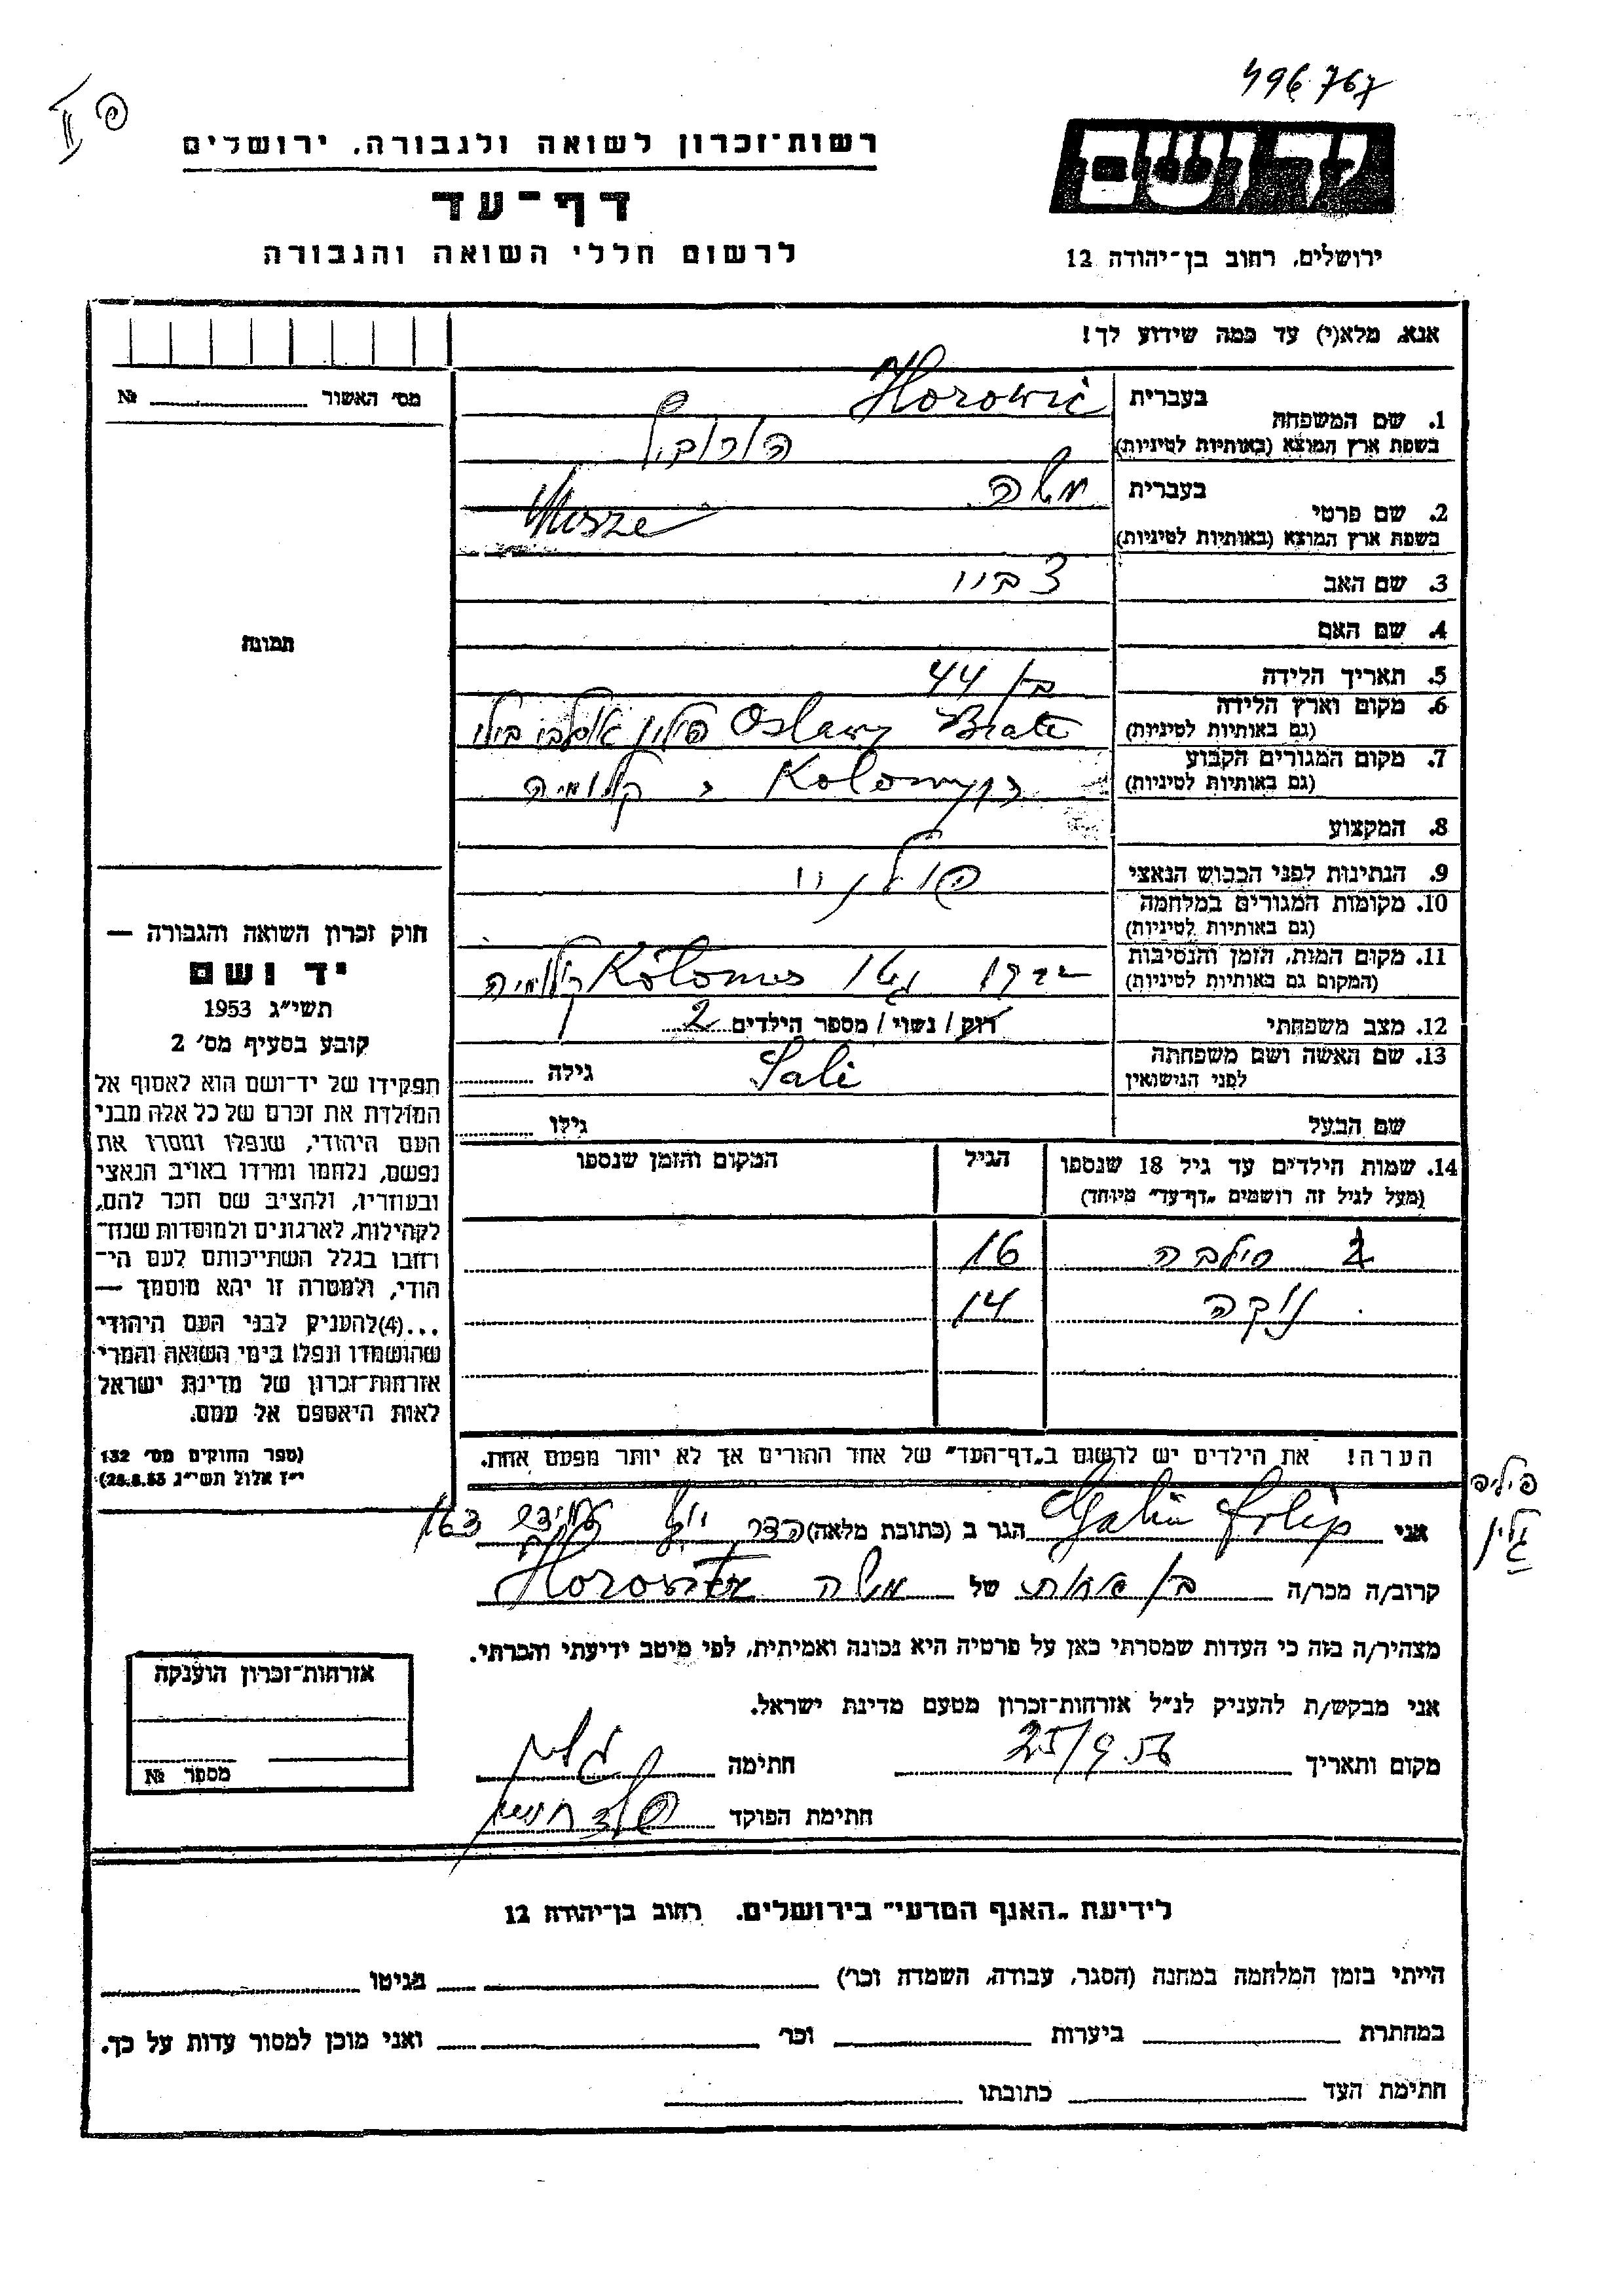 496767
פ
II
רשות־זכרון לשואה ולגבורה, ירושלים
דף־עד
לרשום חללי השואה והגבורה
יד ושם
ירושלים, רחוב בן־יהודה 12
אנא, מלא(י) עד כמה שידוע לך!
מס׳ האשור № 
1. שם המשפחה
בעברית Horowic
בשפת ארץ המוצא (באותיות לטיניות) הורוביץ
2. שם פרטי
בעברית משה
בשפת ארץ המוצא (באותיות לטיניות) Mosze
3. שם האב
4. שם האם
5. תאריך הלידה בן 44
6. מקום וארץ הלידה
(גם באותיות לטיניות) Oslawy Biate פולין
7. מקום המגורים הקבוע
(גם באותיות לטיניות) Kolomyja קולומיה
8. המקצוע
9. הנתינות לפני הכבוש הנאצי
10. מקומות המגורים במלחמה
(גם באותיות לטיניות)
11. מקום המות, הזמן והנסיבות
(המקום גם באותיות לטיניות) גטו קולומיה
12. מצב משפחתי רוק / נשוי / מספר הילדים 2
13. שם האשה ושם משפחתה
לפני הנישואין Sali גילה
שם הבעל גילו
14. שמות הילדים עד גיל 18 שנספו
(מעל לגיל זה רושמים „דף־עד" מיוחד)
הגיל
המקום והזמן שנספו
סילבה 16
14
הערה! את הילדים יש לרשום ב„דף־העד" של אחד ההורים אך לא יותר מפעם אחת.
תמונה
חוק זכרון השואה והגבורה —
יד ושם
תשי״ג 1953
קובע בסעיף מס׳ 2
תפקידו של יד־ושם הוא לאסוף אל
המולדת את זכרם של כל אלה מבני
העם היהודי, שנפלו ומסרו את
נפשם, נלחמו ומרדו באויב הנאצי
ובעוזריו, ולהציב שם וזכר להם,
לקהילות, לארגונים ולמוסדות שנח־
רבו בגלל השתייכותם לעם הי־
הודי, ולמטרה זו יהא מוסמך —
...(4)להעניק לבני העם היהודי
שהושמדו ונפלו בימי השואה והמרי
אזרחות־זכרון של מדינת ישראל
לאות היאספם אל עמם.
(ספר החוקים מס׳ 132
י״ז אלול תשי״ג 28.8.53)
פיליפ
גלין
אני Galin Filip הגר ב (כתובת מלאה) 163
קרוב/ה מכר/ה בן אחות של משה Horowitz
מצהיר/ה בזה כי העדות שמסרתי כאן על פרטיה היא נכונה ואמיתית, לפי מיטב ידיעתי והכרתי.
אני מבקש/ת להעניק לנ״ל אזרחות־זכרון מטעם מדינת ישראל.
מקום ותאריך 25/9 56 חתימה גלין
חתימת הפוקד
אזרחות־זכרון הוענקה
מספר №
לידיעת „האגף המדעי" בירושלים, רחוב בן־יהודה 12
הייתי בזמן המלחמה במחנה (הסגר, עבודה, השמדה וכו׳) בגיטו
במחתרת ביערות וכו׳ ואני מוכן למסור עדות על כך.
חתימת העד כתובתו